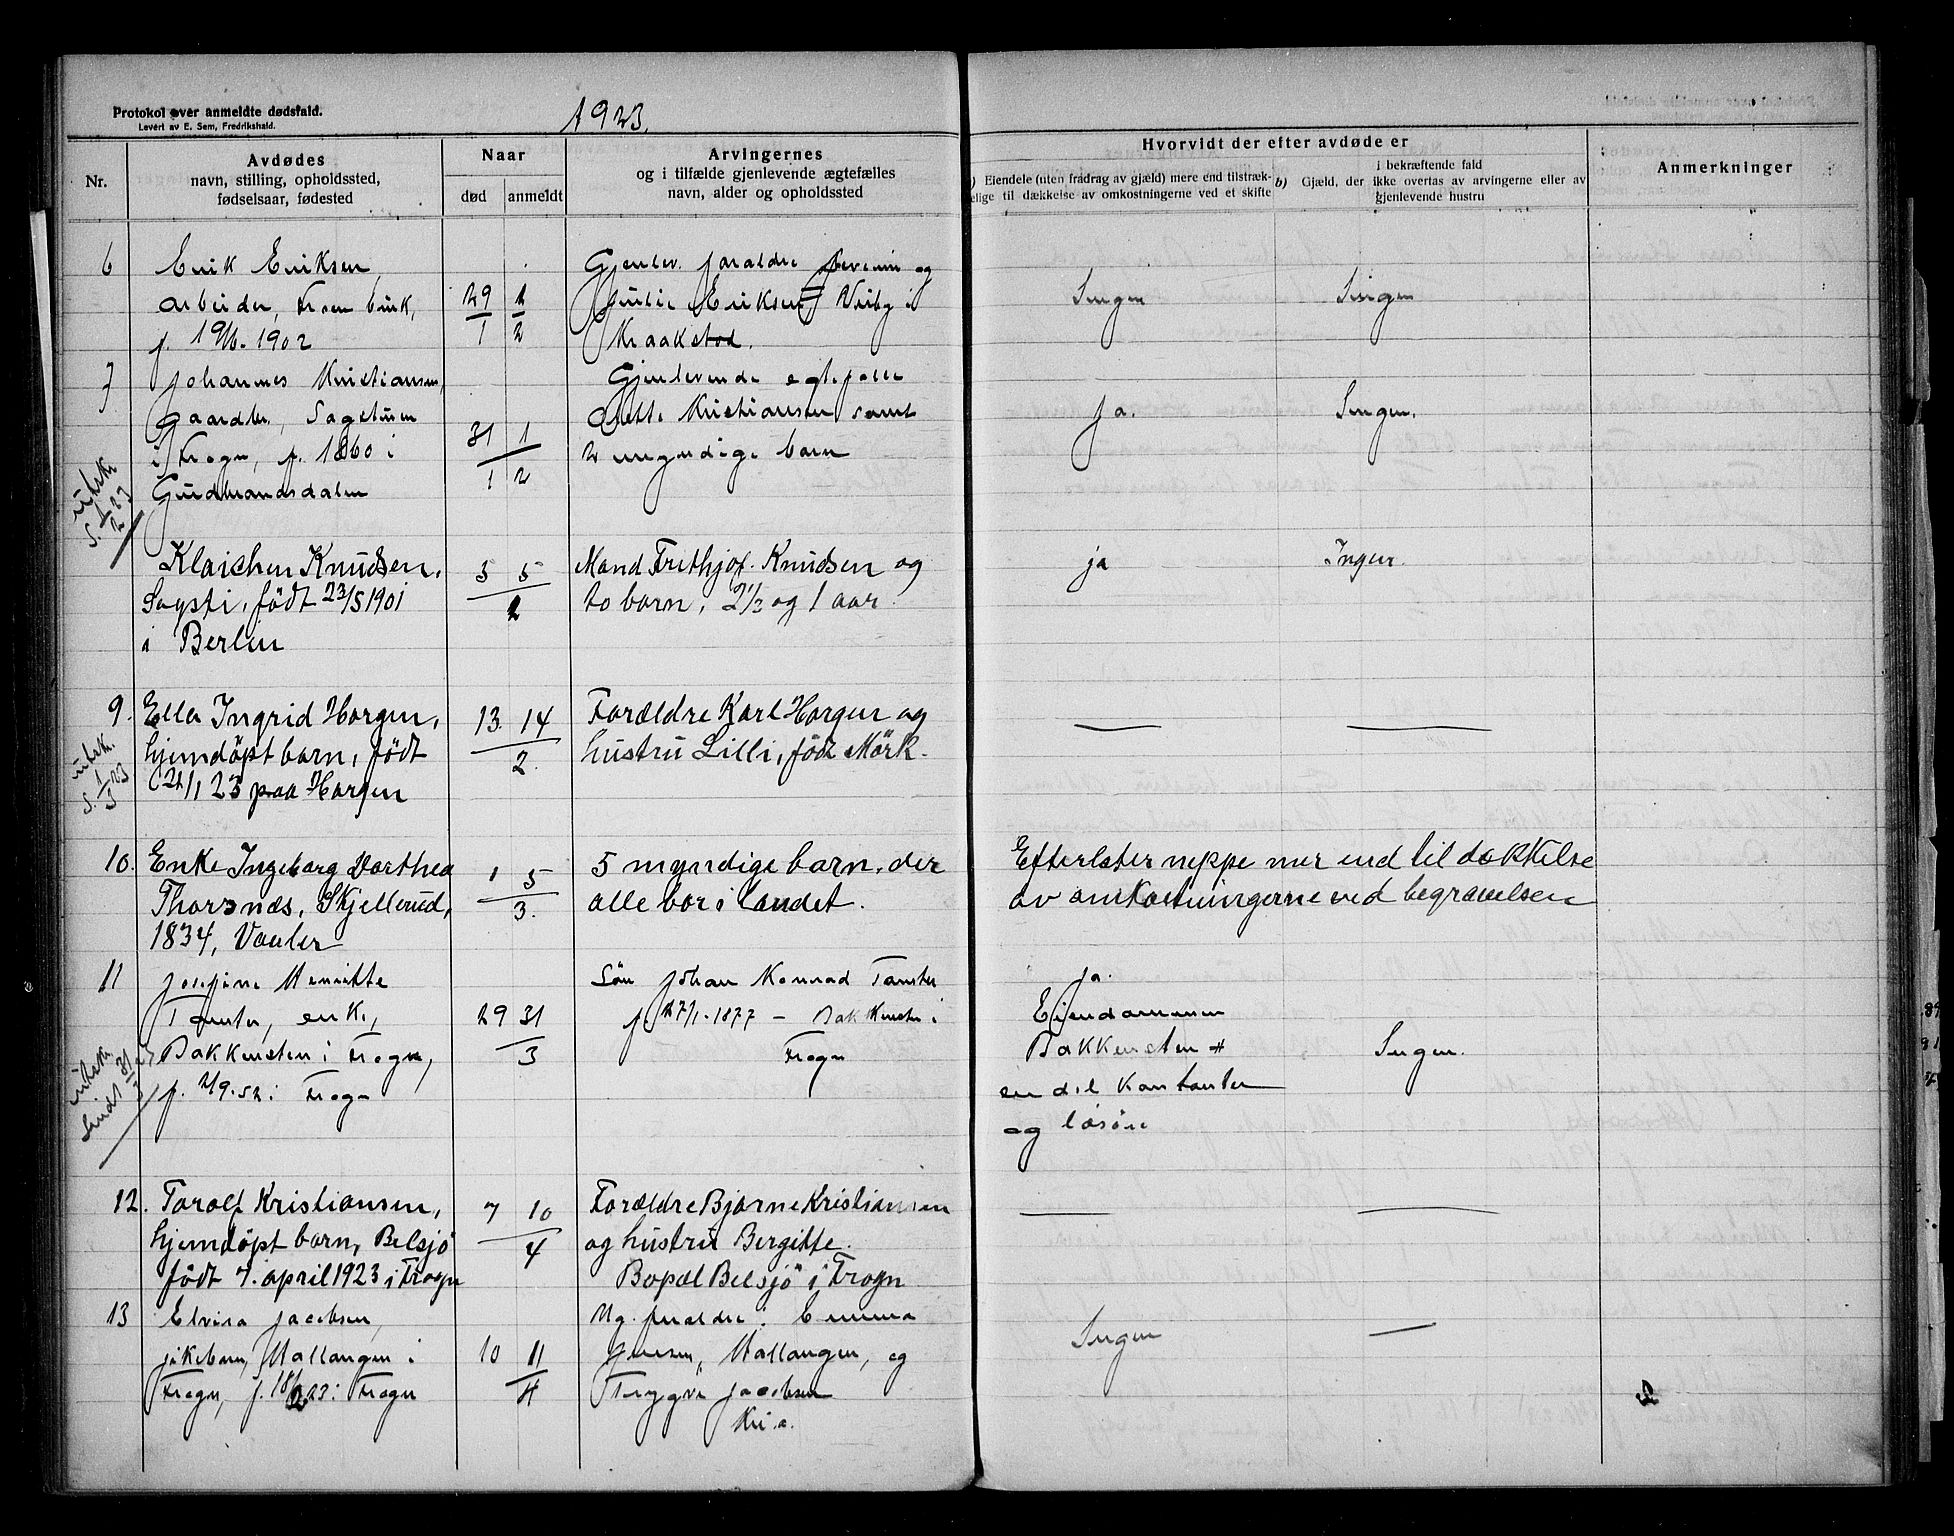 Protokol over anmeldte dødsfald.
Levert av E. Sem, Fredrikshald.
1923.
Nr.
Avdødes
navn, stilling, opholdssted,
fødselsaar, fødested
Naar
død
anmeldt
Arvingernes
og i tilfælde gjenlevende ægtefælles
navn, alder og opholdssted
Hvorvidt der efter avdøde er
a) Eiendele (uten fradrag av gjæld) mere end tilstræk-
kelige til dækkelse av omkostningerne ved et skifte
b) Gjæld, der
i bekræftende fald
ikke overtas av arvingerne eller av
gjenlevende hustru
Anmerkninger
6
Erik Eriksen,
arbeider, Froen bruk,
f. 19/6. 1902
29/1
1/2
Gjenlev. foraldre Severin og
Julie Eriksen, Visby i
Kraakstad.
Ingen
Ingen
7
Johannes Kristiansen,
gaardbr., Sagstuen
i Frogn, f. 1860 i
Gudbrandsdalen
31/1
1/2
Gjenlevende egtefelle
Anette Kristiansen samt
2 umyndige barn
ja.
Ingen.
utsk.
S. 1/2 23
Klaichen Knudsen,
Sagsti, født 23/5 1901
i Berlin
3
5
2
Mand Frithjof Knudsen og
to barn, 2 1/2 og 1 aar.
ja
Ingen.
9.
Ella Ingrid Horgen,
hjemdøpt barn, født
21/1 23 paa Horgen
13.
14
2.
Forældre Karl Horgen og
hustru Lilli, født Mörk.
utsk.
S. 1/3 23
10.
Enke Ingeborg Dorthea
Thorsnæs, Skjellerud,
1834, Vaaler
1
5
3.
5 myndige barn, der
alle bor i landet.
Efterlater neppe mer end til dækkelse
av omkostningerne ved begravelsen
11
Josefine Henriette
Tomter, enke,
Bakkensten i Frogn,
f. 2/9. 52 i Frogn
29
31
3
Søn Johan Konrad Tomter
f. 27/1. 1877 - Bakkensten i
Frogn
ja.
Eiendommen
Bakkensten +
en del kontanter
og løsøre
Ingen.
utsk.
Sendt 31/3 23
12.
Torolf Kristiansen,
hjemdøpt barn, Belsjö
født 7. april 1923 i Frogn
7
10
4
Forældre Bjarne Kristiansen
og hustru Bergitte.
Bopæl Belsjö i Frogn
13
Elvira Jacobsen,
pikebarn, Hallangen i
Frogn, f. 18/2 23 i Frogn
10
11
4
Ug. foraldre: Emma
Jensen, Hallangen, og
Trygve Jacobsen
Kr.a.
Ingen